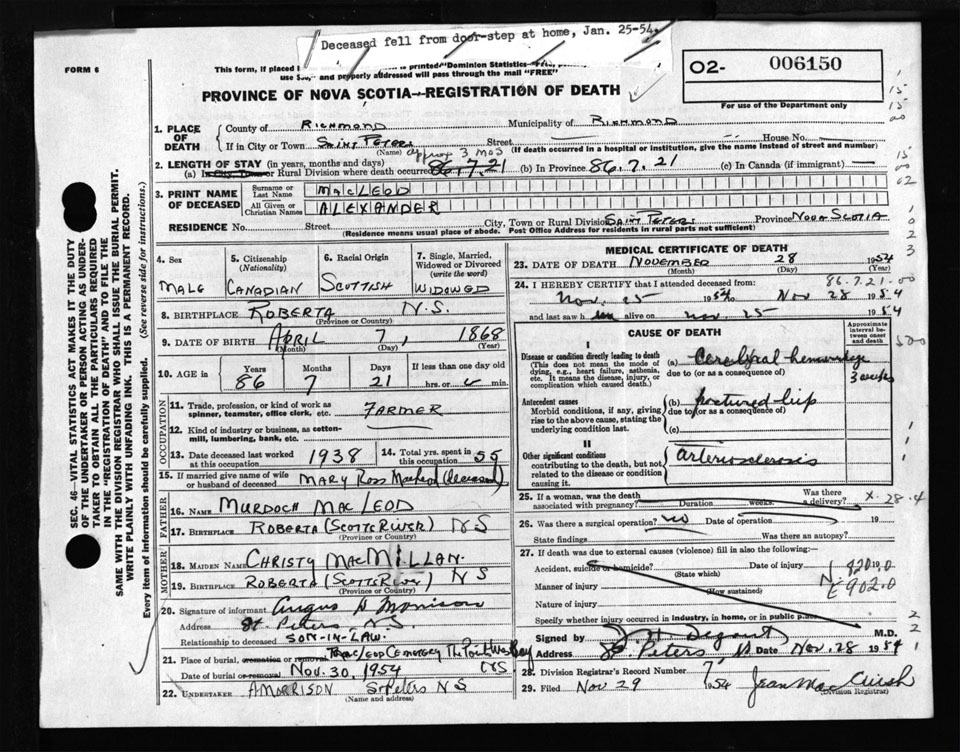 Deceased fell from door-step at home, Jan. 25-54.
FORM 6
This form, if placed
is printed "Dominion Statistics
and properly addressed will pass through the mail "FREE"
O2- 006150
For use of the Department only
PROVINCE OF NOVA SCOTIA—REGISTRATION OF DEATH
1. PLACE OF DEATH
County of RICHMOND Municipality of RICHMOND
If in City or Town SAINT PETERS Street House No.
(Name) (If death occurred in a hospital or institution, give the name instead of street and number)
approx 3 mos
2. LENGTH OF STAY (in years, months and days)
(a) In City, Town or Rural Division where death occurred 86.7.21 (b) In Province 86.7.21 (c) In Canada (if immigrant)
3. PRINT NAME OF DECEASED
Surname or Last Name MACLEOD
All Given or Christian Names ALEXANDER
RESIDENCE No. Street City, Town or Rural Division SAINT PETERS Province NOVA SCOTIA
(Residence means usual place of abode. Post Office Address for residents in rural parts not sufficient)
4. Sex MALE
5. Citizenship (Nationality) CANADIAN
6. Racial Origin SCOTTISH
7. Single, Married, Widowed or Divorced (write the word) WIDOWED
8. BIRTHPLACE ROBERTA N.S.
(Province or Country)
9. DATE OF BIRTH APRIL 7, 1868
(Month) (Day) (Year)
10. AGE in Years 86 Months 7 Days 21 If less than one day old hrs. or min.
OCCUPATION
11. Trade, profession, or kind of work as spinner, teamster, office clerk, etc. FARMER
12. Kind of industry or business, as cotton-mill, lumbering, bank, etc.
13. Date deceased last worked at this occupation 1938 14. Total yrs. spent in this occupation 55
15. If married give name of wife or husband of deceased MARY ROSS MacLeod (deceased)
FATHER
16. NAME MURDOCH MACLEOD
17. BIRTHPLACE ROBERTA (SCOTTS RIVER) NS
(Province or Country)
MOTHER
18. MAIDEN NAME CHRISTY MACMILLAN
19. BIRTHPLACE ROBERTA (SCOTTS RIVER) NS
(Province or Country)
20. Signature of informant Angus D Morrison
Address St. Peters N.S.
Relationship to deceased SON-IN-LAW
21. Place of burial, cremation or removal MacLeod Cemetery The Point West Bay
Date of burial or removal NOV. 30, 1954
22. UNDERTAKER A MORRISON St Peters NS
(Name and address)
MEDICAL CERTIFICATE OF DEATH
23. DATE OF DEATH NOVEMBER 28 1954
(Month) (Day) (Year)
86.7.21.00
24. I HEREBY CERTIFY that I attended deceased from:
Nov. 25 1954 to Nov 28 1954
and last saw h im alive on Nov. 25 1954
CAUSE OF DEATH
Approximate interval between onset and death
I
Disease or condition directly leading to death
(This does not mean the mode of dying, e.g., heart failure, asthenia, etc. It means the disease, injury, or complication which caused death.)
(a) Cerebral hemorrhage
3 weeks
due to (or as a consequence of)
Antecedent causes
Morbid conditions, if any, giving rise to the above cause, stating the underlying condition last.
(b) fractured hip
due to (or as a consequence of)
(c)
II
Other significant conditions
contributing to the death, but not related to the disease or condition causing it.
arteriosclerosis
25. If a woman, was the death associated with pregnancy? Duration weeks. Was there a delivery?
X-28-4
26. Was there a surgical operation? no Date of operation 19
State findings Was there an autopsy?
27. If death was due to external causes (violence) fill in also the following:—
Accident, suicide or homicide? Date of injury 19
(State which)
N 820.0
E 902.0
Manner of injury
(How sustained)
Nature of injury
Specify whether injury occurred in industry, in home, or in public place
Signed by M.D.
Address St. Peters, NS Date Nov. 28 1954
28. Division Registrar's Record Number 7
29. Filed Nov 29 1954
(Division Registrar)
SEC. 46—VITAL STATISTICS ACT MAKES IT THE DUTY
OF THE UNDERTAKER OR PERSON ACTING AS UNDER-
TAKER TO OBTAIN ALL THE PARTICULARS REQUIRED
IN THE "REGISTRATION OF DEATH" AND TO FILE THE
SAME WITH THE DIVISION REGISTRAR WHO SHALL ISSUE THE BURIAL PERMIT.
WRITE PLAINLY WITH UNFADING INK. THIS IS A PERMANENT RECORD.
Every item of information should be carefully supplied. (See reverse side for instructions.)